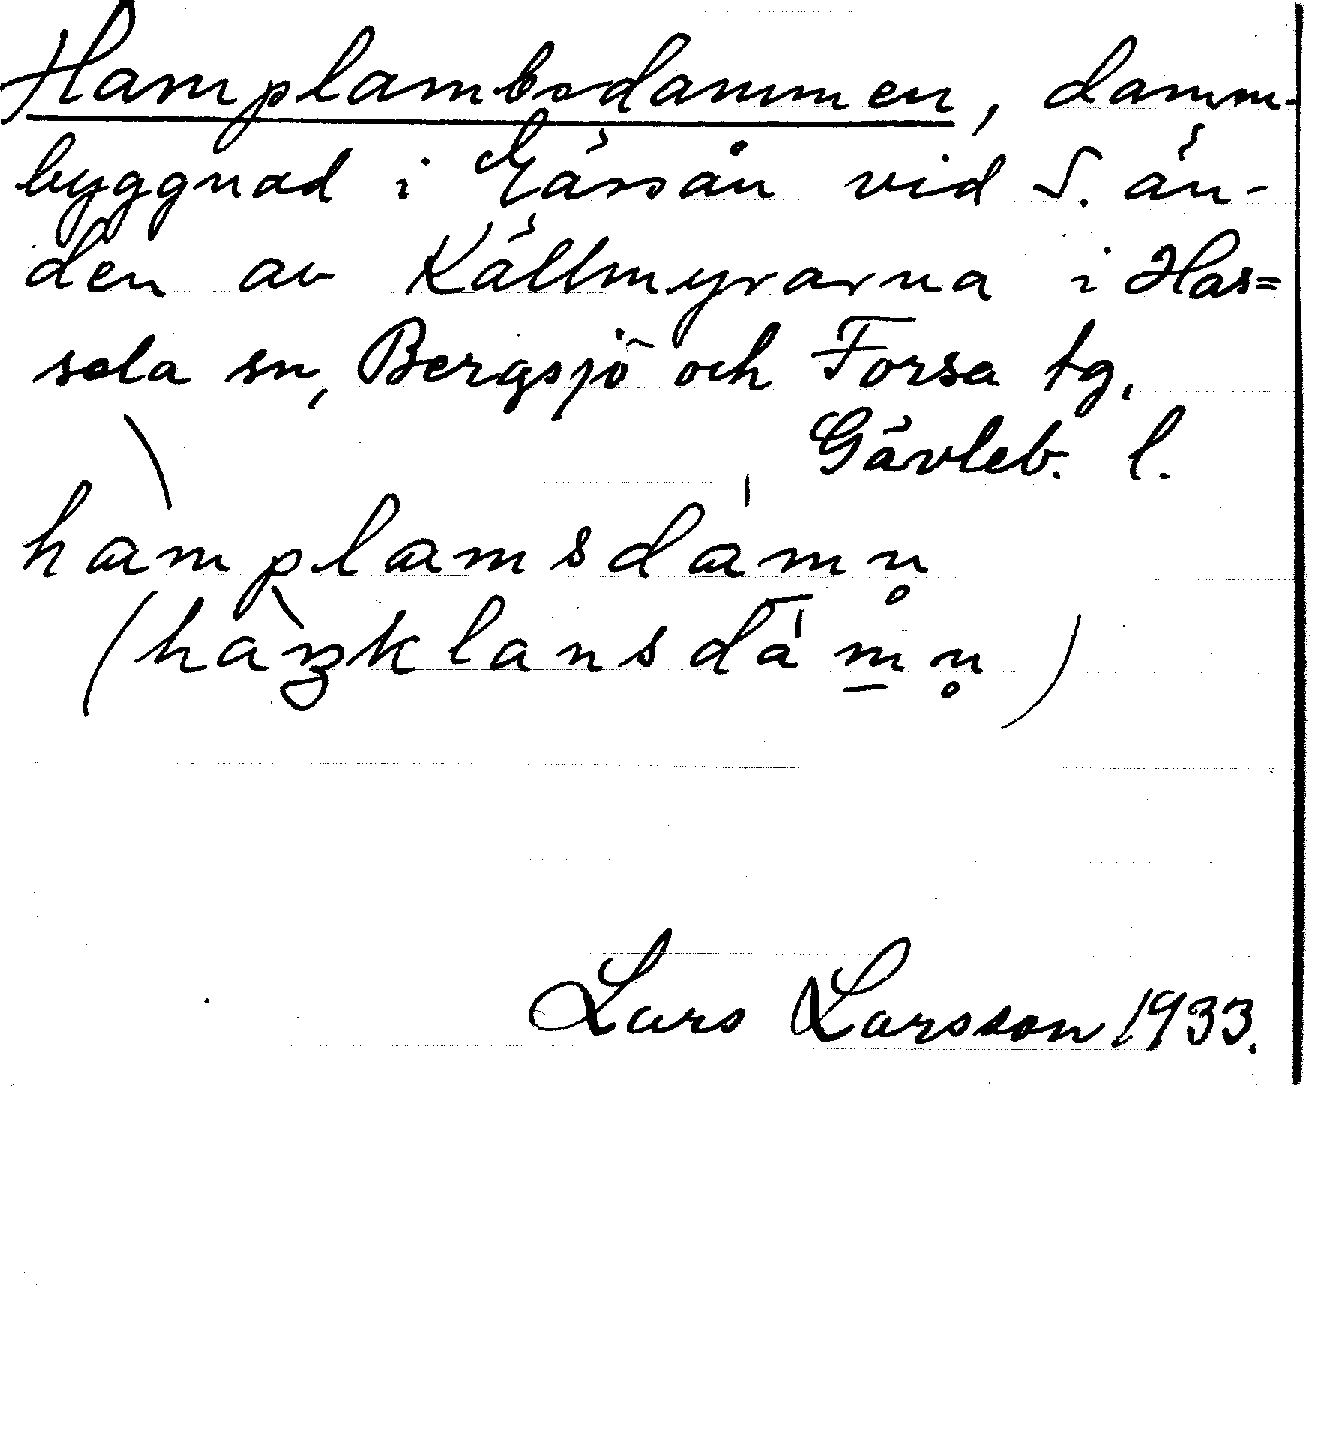 Hamplambsdammen, damm-
byggnad i Gåssån vid S. än-
den av Källmyrarna i Has=
sela sn, Bergsjö och Forsa tg.
Gävleb. l.
hamplamsdamn̥
(haŋklansdamn̥)
Lars Larsson 1933.